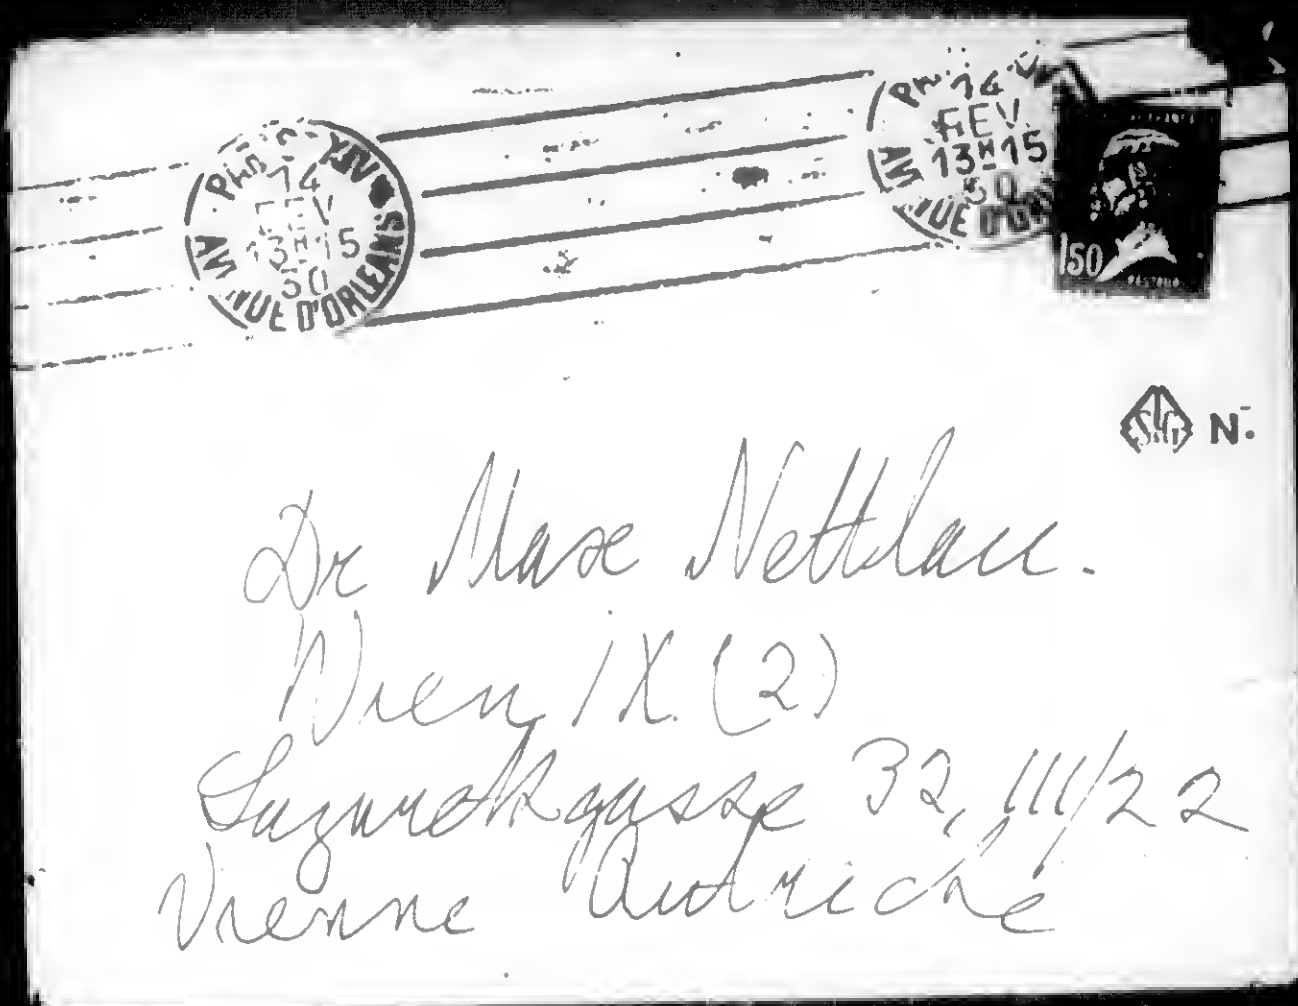 PARIS XIV
14
FEV
13H15
30
AVENUE D'ORLEANS
PARIS
14
FEV
13H15
30
AVENUE D'OR
1F50
PASTEUR
S.G N°
Dr Max Nettlau.
Wien IX (2)
Lazarethgasse 32, III/22
Vienne Autriche